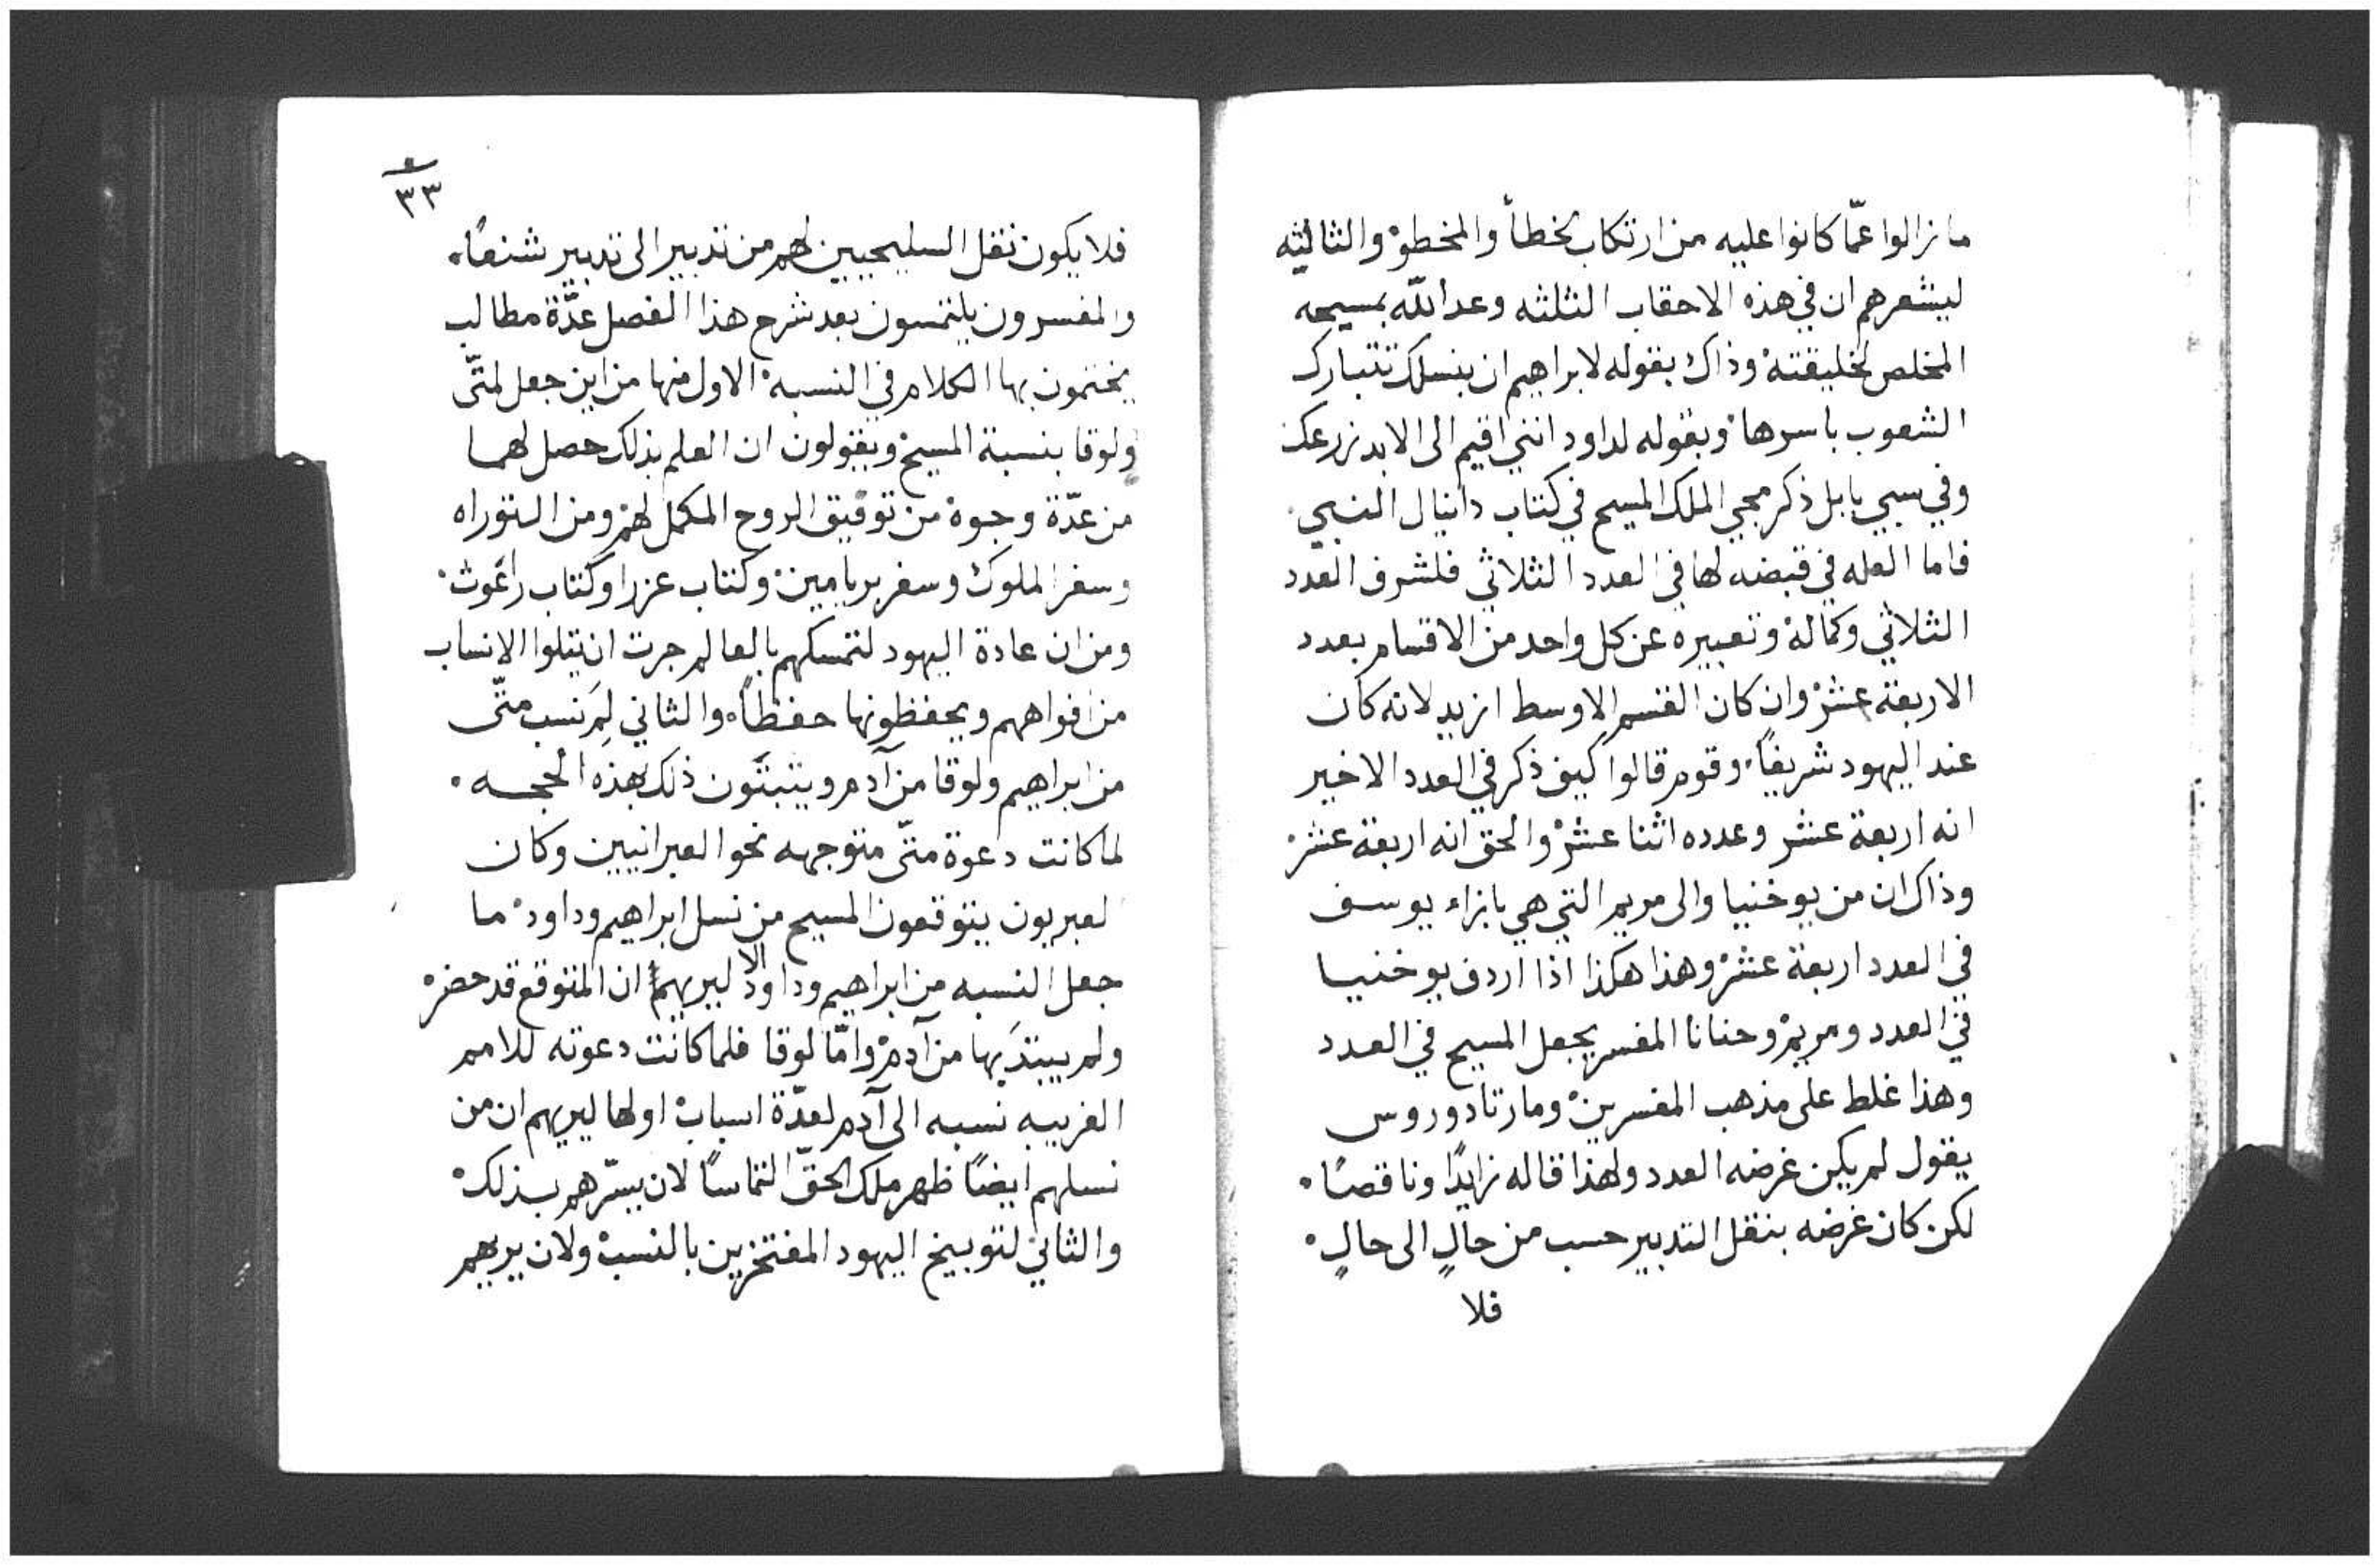 ما زالوا عمّا كانوا عليه من ارتكاب الخطأ والمحظوة والثالثه
ليشعرهم ان في هذه الاحقاب الثلثه وعد اللّه بمسيحه
المخلص لخليقته وذاك بقوله لابراهيم ان بنسلك تتبارك
الشعوب باسرها وبقوله لداود انني اقيم الى الابد زرعك
وفي سبي بابل ذكر مجي الملك المسيح في كتاب دانيال النبي
فاما العله في قبضه لها في العدد الثلاثي فلشرف العدد
الثلاثي وكماله وتعبيره عن كل واحد من الاقسام بعدد
الاربعة عشر وان كان القسم الاوسط ازيد لانه كان
عند اليهود شريفاً وقوم قالوا كيف ذكر في العدد الاخير
انه اربعة عشر وعدده اثنا عشر والحق انه اربعة عشر
وذاك ان من يوخنيا والى مريم التي هي بازاء يوسف
في العدد اربعة عشر وهذا هكذا اذا اردف يوخنيا
في العدد ومريم وحنانا المفسر يجعل المسيح في العدد
وهذا غلط على مذهب المفسرين ومار تادوروس
يقول لم يكن غرضه العدد ولهذا قاله زايدًا وناقصًا
لكن كان غرضه بنقل التدبير حسب من حالٍ الى حالٍ
فلا
٣٣
فلا يكون نقل السليحيين لهم من تدبير الى تدبير شنعًا
والمفسرون يلتمسون بعد شرح هذا الفصل عدّة مطالب
يختمون بها الكلام في النسبه الاول منها من اين جعل لمتّى
ولوقا بنسبة المسيح ويقولون ان العلم بذلك حصل لهما
من عدّة وجوه من توفيق الروح المكمل لهم ومن التوراه
وسفر الملوك وسفر بريامين وكتاب عزرا وكتاب راغوث
ومن ان عادة اليهود لتمسكهم بالعالم جرت ان يتلوا الانساب
من افواههم ويحفظونها حفظاً والثاني لِمَ نسب متّى
من ابراهيم ولوقا من آدم ويثبتون ذلك بهذه الحجه
لما كانت دعوة متّى متوجهه نحو العبرانيين وكان
لعبريون يتوقعون المسيح من نسل ابراهيم وداود ما
جعل النسبه من ابراهيم وداود الا ليريهم ان المتوقع قد حضر
ولم يبتدَ بها من آدم وامّا لوقا فلما كانت دعوته للامم
الغريبه نسبه الى آدم لعدّة اسباب اولها ليريهم ان من
نسلهم ايضًا ظهر ملك الحقّ التماسًا لان يسرّهم بذلك
والثاني لتوبيخ اليهود المفتخرين بالنسب ولان يريهم